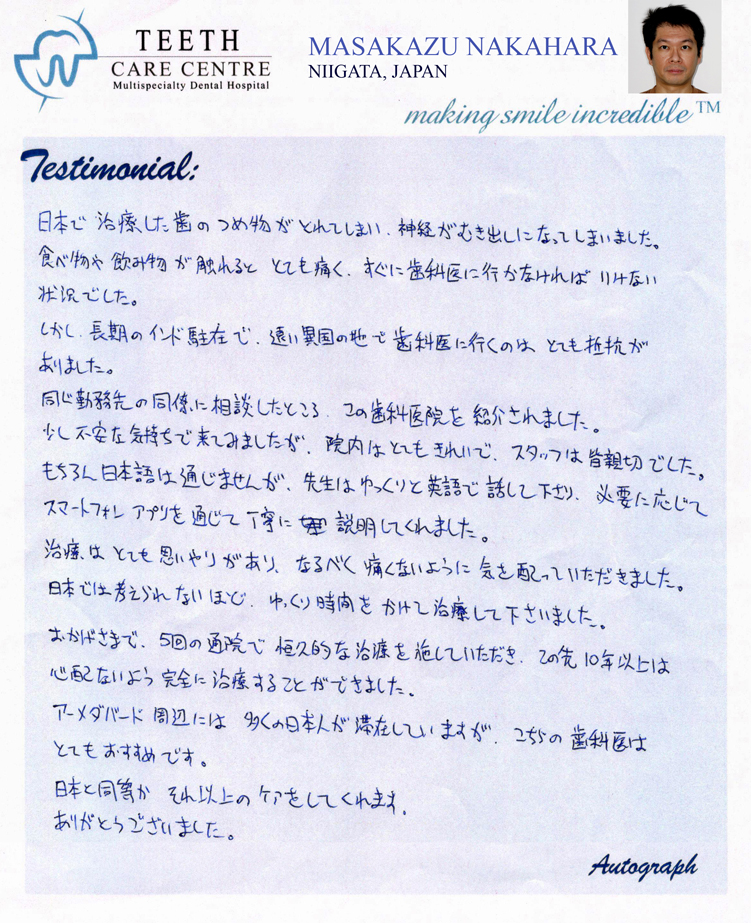 TEETH
CARE CENTRE
Multispecialty Dental Hospital
MASAKAZU NAKAHARA
NIIGATA, JAPAN
making smile incredible™
Testimonial:
日本で治療した歯のつめ物がとれてしまい、神経がむき出しになってしまいました。
食べ物や飲み物が触れるととても痛く、すぐに歯科医に行かなければいけない
状況でした。
しかし、長期のインド駐在で、遠い異国の地で歯科医に行くのはとても抵抗が
ありました。
同じ勤務先の同僚に相談したところ、この歯科医院を紹介されました。
少し不安な気持ちで来てみましたが、院内はとてもきれいで、スタッフは皆親切でした。
もちろん日本語は通じませんが、先生はゆっくりと英語で話して下さり、必要に応じて
スマートフォンアプリを通じて丁寧に説明してくれました。
治療はとても思いやりがあり、なるべく痛くないように気を配っていただきました。
日本では考えられないほど、ゆっくり時間をかけて治療して下さいました。
おかげさまで、5回の通院で恒久的な治療を施していただき、この先10年以上は
心配ないよう完全に治療することができました。
アーメダバード周辺には多くの日本人が滞在していますが、こちらの歯科医は
とてもおすすめです。
日本と同等かそれ以上のケアをしてくれます。
ありがとうございました。
Autograph